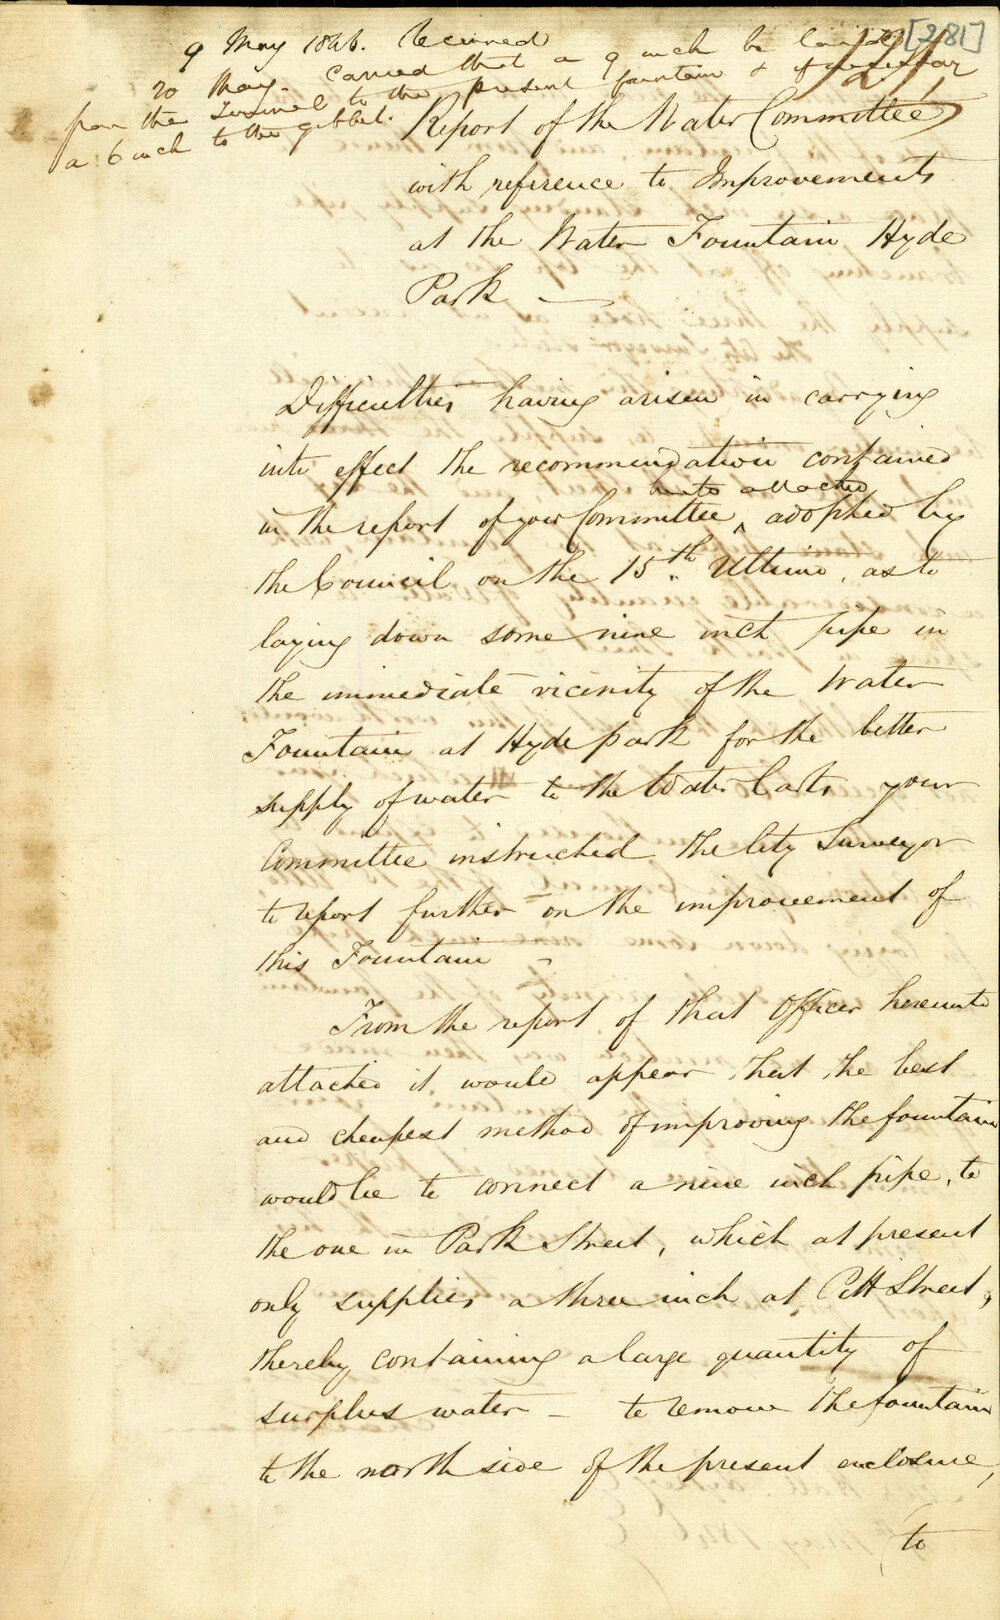 [281]
9 May 1846. Received
20 May. Carried that a 9 inch be laid
from the Tunnel to the present fountain & if necessary
a 6 inch to the gibbet.
Report of the Water Committee
with reference to Improvements
at the Water Fountain Hyde
Park —
Difficulties having arisen in carrying
into effect the recommendation contained
hereto attached
in the report of your Committee ^ adopted by
the Council on the 15th Ultimo, as to
laying down some nine inch pipe in
the immediate vicinity of the Water
Fountain at Hyde park for the better
supply of water to the Water Carts your
Committee instructed the City Surveyor
to report further on the improvement of
this Fountain -
From the report of that Officer hereunto
attached it would appear that the best
and cheapest method of improving the fountain
would be to connect a nine inch pipe, to
the one in Park Street, which at present
only supplies a three inch at Pitt Street,
thereby containing a large quantity of
surplus water - to remove the fountain
to the north side of the present enclosure,
to